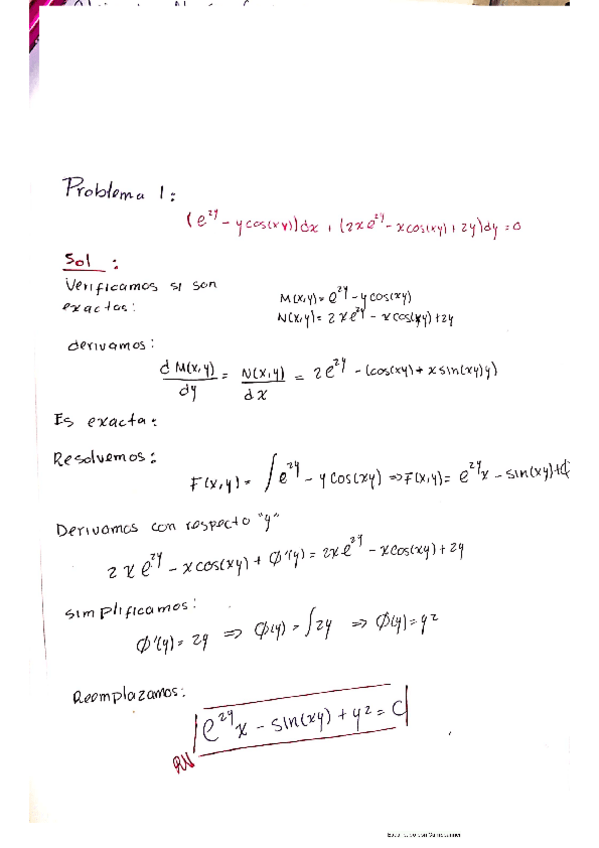 Problema 1:
(e^{2y} - y cos(xy))dx + (2xe^{2y} - x cos(xy) + 2y)dy = 0
Sol :
Verificamos si son
exactas:
M(x,y) = e^{2y} - y cos(xy)
N(x,y) = 2xe^{2y} - x cos(xy) + 2y
derivamos:
d M(x,y)/dy = N(x,y)/dx = 2e^{2y} - (cos(xy) + x sin(xy) y)
Es exacta:
Resolvemos:
F(x,y) = ∫ e^{2y} - y cos(xy) => F(x,y) = e^{2y}x - sin(xy) +
Derivamos con respecto "y"
2xe^{2y} - x cos(xy) + Ø'(y) = 2xe^{2y} - x cos(xy) + 2y
simplificamos:
Ø'(y) = 2y => Ø(y) = ∫2y => Ø(y) = y²
Reemplazamos:
e^{2y}x - sin(xy) + y² = C